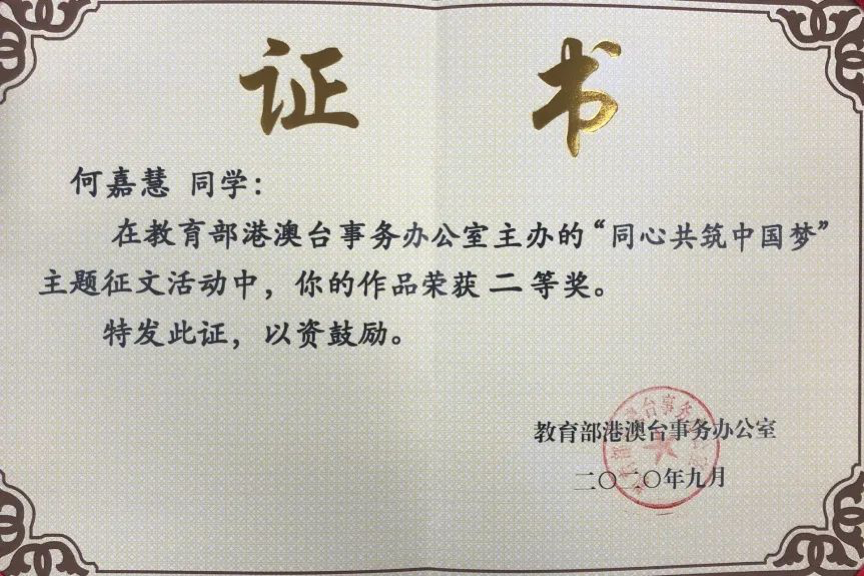 证 书
何嘉慧 同学：
在教育部港澳台事务办公室主办的“同心共筑中国梦”
主题征文活动中，你的作品荣获 二 等奖。
特发此证，以资鼓励。
教育部港澳台事务办公室
二〇二〇年九月